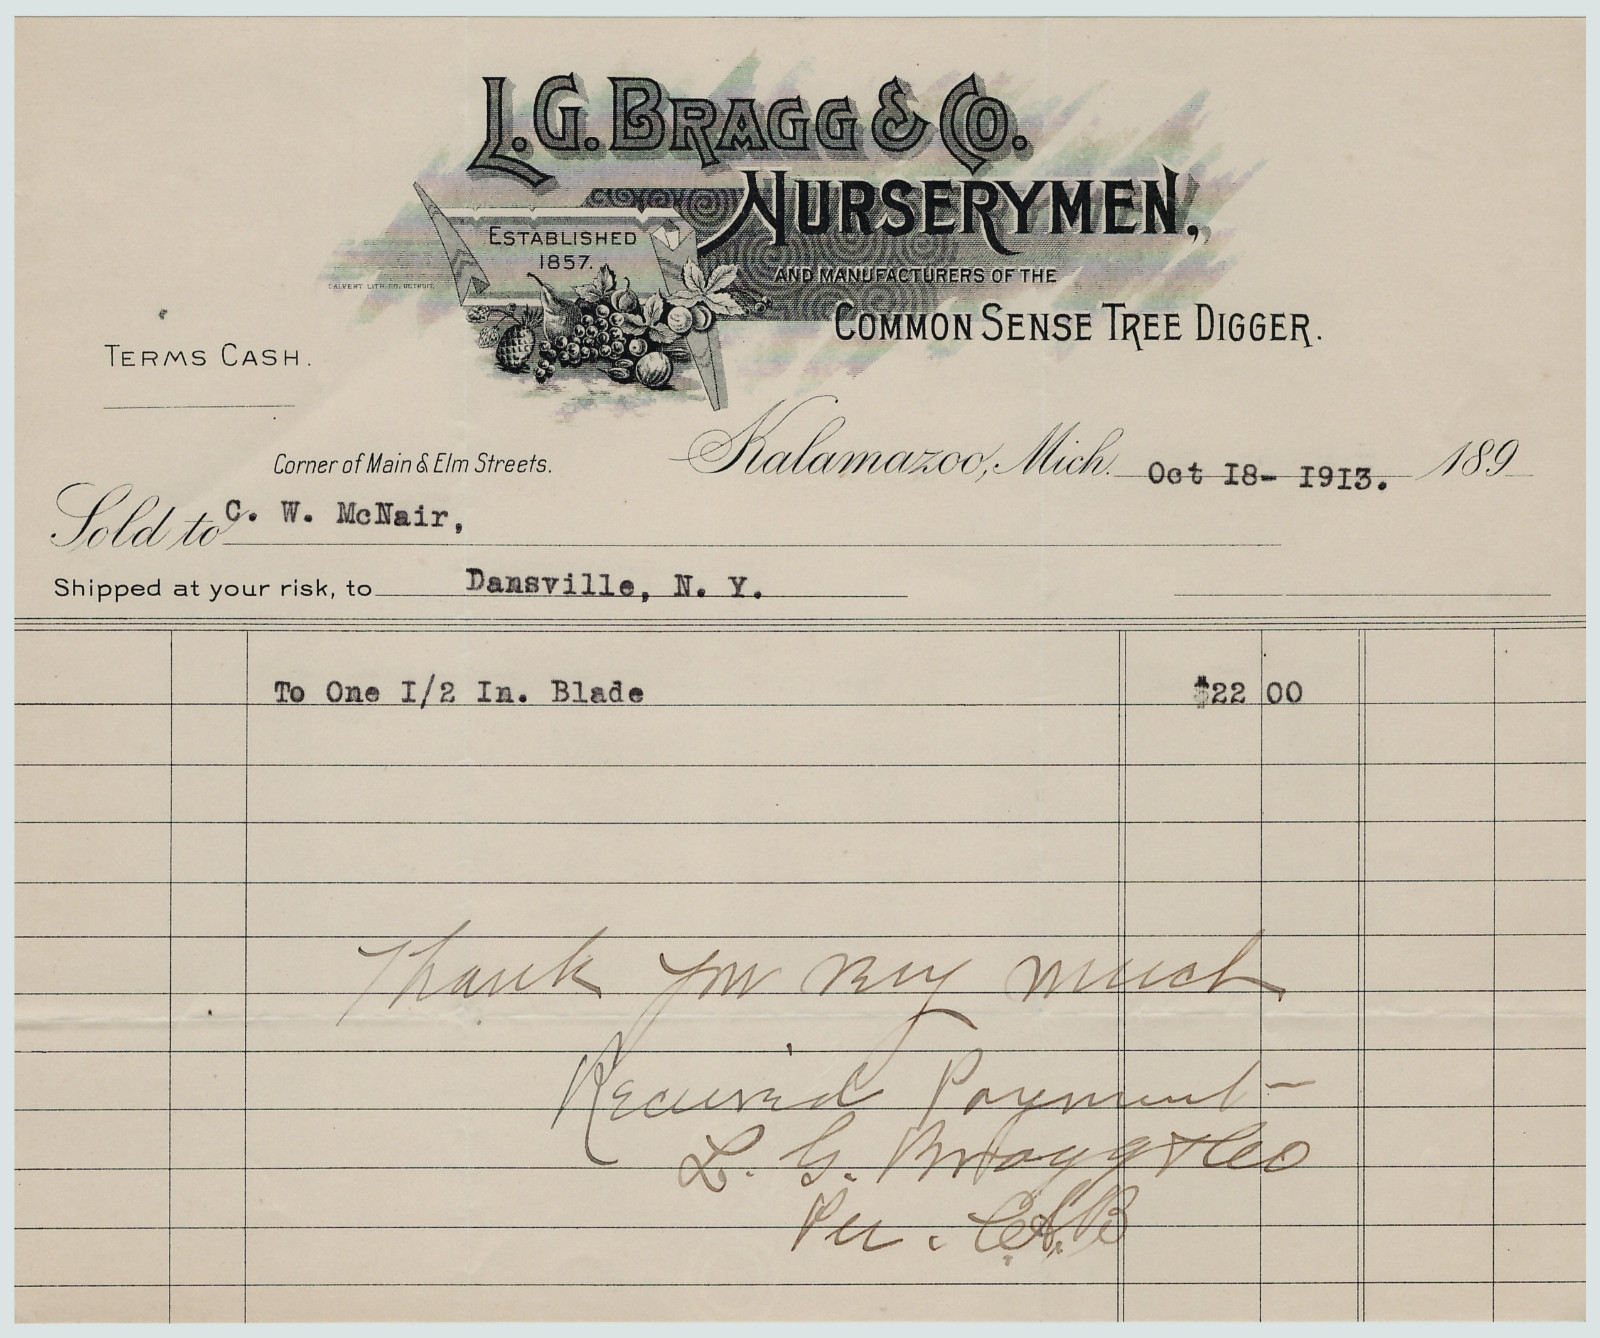 L.G. BRAGG & CO.
NURSERYMEN,
ESTABLISHED
1857.
AND MANUFACTURERS OF THE
CALVERT LITH. CO. DETROIT.
COMMON SENSE TREE DIGGER.
TERMS CASH.
Corner of Main & Elm Streets.
Kalamazoo, Mich. Oct 18- 1913. 189
Sold to C. W. McNair,
Shipped at your risk, to Dansville, N. Y.
To One I/2 In. Blade $22 00
Thank you very much
Received Payment
L. G. Bragg & Co
Per. C.A.B